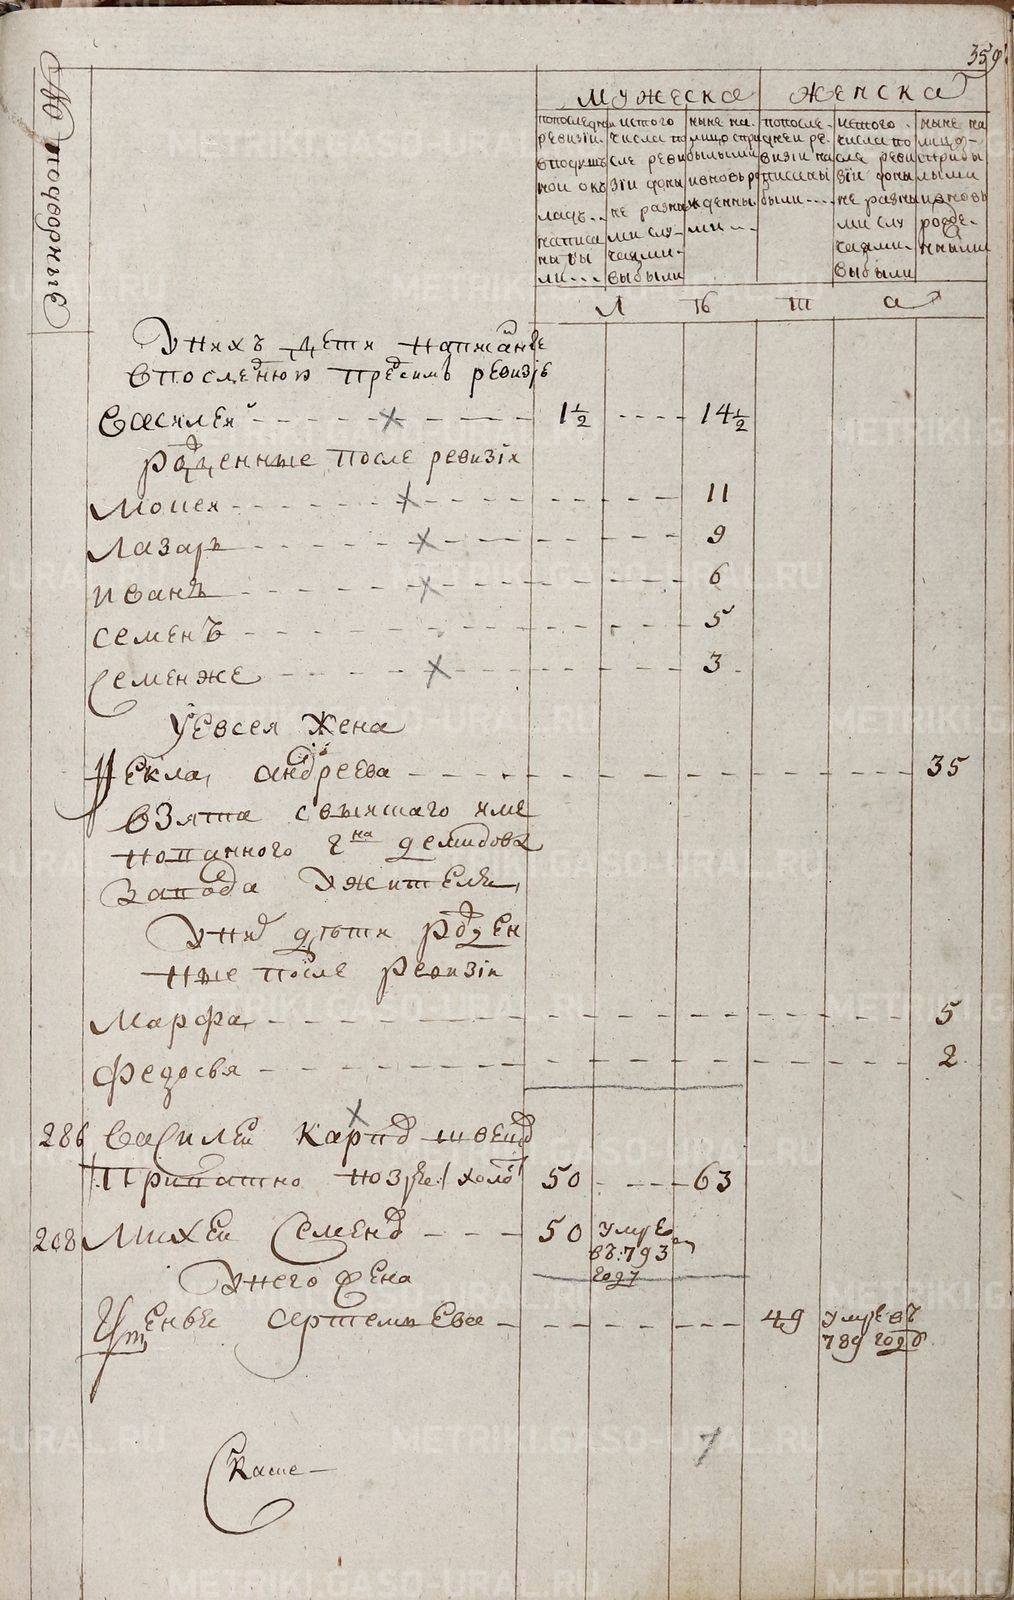 359
№ подворные
мужеска
женска
попоследней
ревизии
вподуш
ной ок
ладъ
написа
ны бы
ли
истого
числа по
сле реви
зiи
разны
ми слу
чаями
выбыли
ныне на
лицо спри
былыми
ивновь ро
жденны
ми
попосле
дней ре
визiи на
писаны
были
истого
числа по
сле реви
зiи
разны
ми слу
чаями
выбыли
ныне на
лицо
сприбы
лыми
ивновь
рожде
нными
Л ѣ т а
Унихъ дети написанные
впоследнюю пресимъ ревизiю
Василей 1½ 14½
рожденные после ревизiи
Мосей 11
Лазарь 9
иванъ 6
семенъ 5
Семенже 3
Уевсея жена
Фекла андреева 35
взята свышшаго име
нованного гна демидова
завода ужителя
Унихъ дѣти рожден
ные после ревизiи
Марфа 5
Федосья 2
286 Василей Карпов
50 63
208 Михей Семенов 50 умре
въ 793
году
Унего жена
49 умре въ
789 году